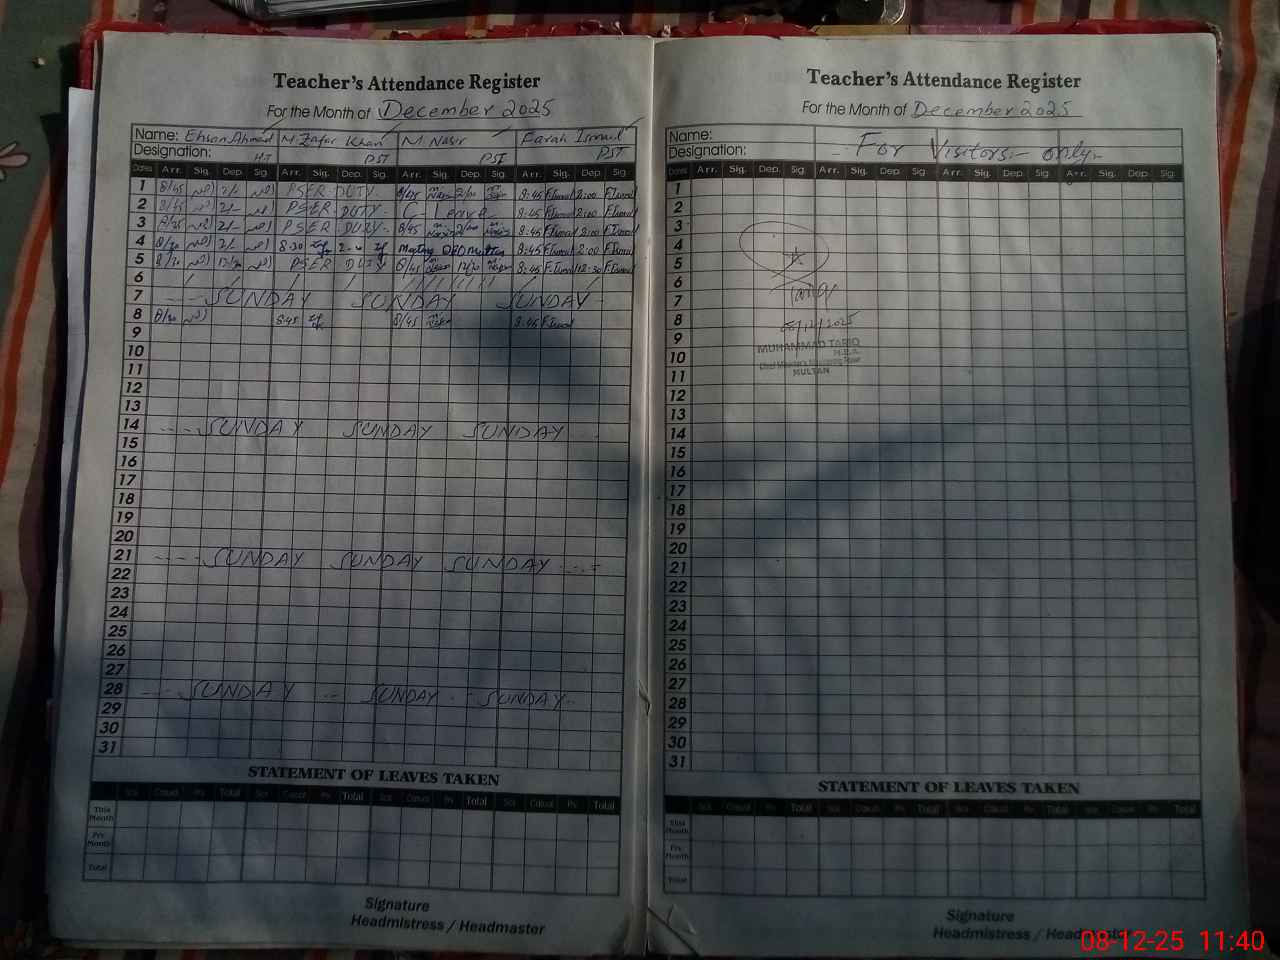 Teacher's Attendance Register
For the Month of December 2025
Name: Ehsan Ahmad M. Zafar Khan M. Nasir Farah Ismail
Designation: H.T PST PST PST
Dates Arr. Sig. Dep. Sig. Arr. Sig. Dep. Sig. Arr. Sig. Dep. Sig. Arr. Sig. Dep. Sig.
1 8/45 2/- PSER DUTY 8/45 2/00 8:45 F.Ismail 2:00 F.Ismail
2 8/45 2/- PSER DUTY C- Leave 8:45 F.Ismail 2:00 F.Ismail
3 8/25 2/- PSER DUTY 8/45 2/00 8:45 F.Ismail 2:00 F.Ismail
4 8/30 2/- 8-30 Meeting 8:45 F.Ismail 2:00 F.Ismail
5 8/30 12/30 PSER DUTY 8/45 12/30 8:45 F.Ismail 12:30 F.Ismail
6
7 SUNDAY SUNDAY SUNDAY
8 8/30 8-45 8/45 8:45 F.Ismail
9
10
11
12
13
14 SUNDAY SUNDAY SUNDAY
15
16
17
18
19
20
21 SUNDAY SUNDAY SUNDAY
22
23
24
25
26
27
28 SUNDAY SUNDAY SUNDAY
29
30
31
STATEMENT OF LEAVES TAKEN
Sick Casual Pri. Total Sick Casual Pri. Total Sick Casual Pri. Total Sick Casual Pri. Total
This Month
Pre Month
Total
Signature
Headmistress / Headmaster
Teacher's Attendance Register
For the Month of December 2025
Name:
Designation: For Visitors only
Dates Arr. Sig. Dep. Sig. Arr. Sig. Dep. Sig. Arr. Sig. Dep. Sig. Arr. Sig. Dep. Sig.
1
2
3
4
5
6
7
8
9
10
11
12
13
14
15
16
17
18
19
20
21
22
23
24
25
26
27
28
29
30
31
Tariq
MUHAMMAD TARIQ
M.E.A.
Chief Minister's Monitoring Force
MULTAN
STATEMENT OF LEAVES TAKEN
Sick Casual Pri. Total Sick Casual Pri. Total Sick Casual Pri. Total Sick Casual Pri. Total
This Month
Pre Month
Total
Signature
Headmistress / Headmaster
08-12-25 11:40